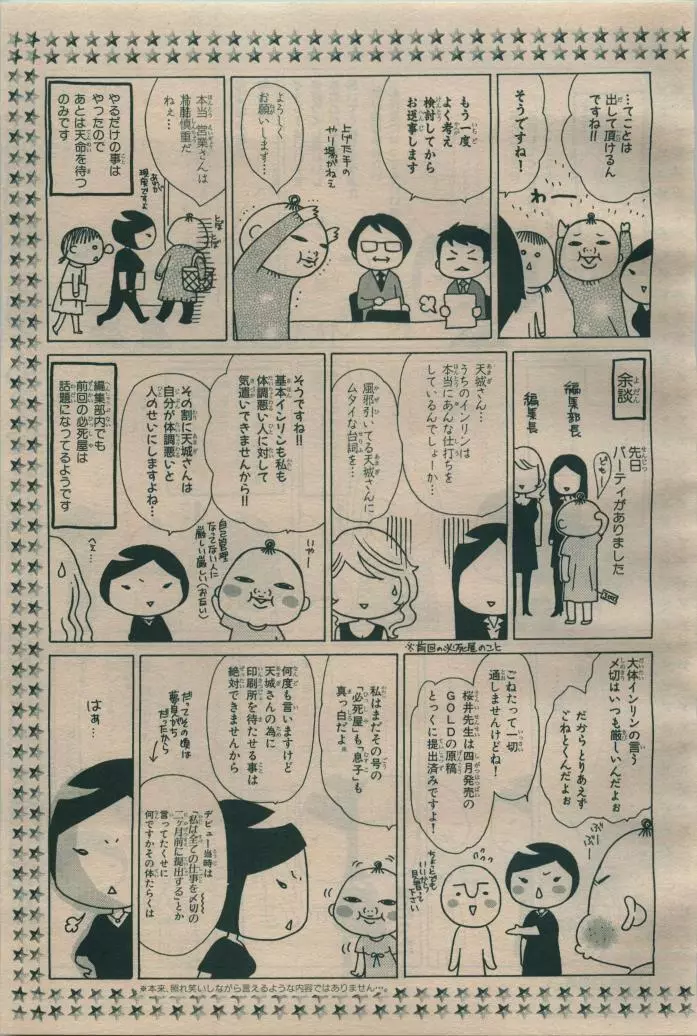 …てことは
出して頂けるん
ですね!!
そうですね!
わー
もう一度
よく考え
検討してから
お返事します
上げた手の
やり場がねぇ
よろしく
お願いします…
本当 営業さんは
冷酷慎重だ
ねぇ…
あれが
現実ですよ
やるだけの事は
やったので
あとは天命を待つ
のみです
余談
先日
パーティがありました
編集部長
編集長
天城さん…
うちのインリンは
本当にあんな仕打ちを
しているんでしょーか…
風邪引いてる天城さんに
ムタイな台詞を…
そうですね!!
基本インリンも私も
体調悪い人に対して
気遣いできませんから!!
その割に天城さんは
自分が体調悪いと
人のせいにしますよね…
いやー
自己管理
なってない人に
厳しい厳しい(お互い)
へぇ…
編集部内でも
前回の必死屋は
話題になってるようです
大体インリンの言う
〆切はいつも厳しいんだよぉ
だからとりあえず
ごねとくんだよぉ
ぶーぶー
※前回の必死屋のこと
ごねたって一切
通しませんけどね!
桜井先生は四月発売の
GOLDの原稿
とっくに提出済みですよ!
ちょっとでも
いいから
見習って
下さい
私はまだその号の
「必死屋」も「息子」も
真っ白だよ※
何度も言いますけど
天城さんの為に
印刷所を待たせる事は
絶対できませんから
デビュー当時は
「私は全ての仕事を〆切の
二ヶ月前に提出する」とか
言ってたくせに
何ですかその体たらくは
だってその頃は
夢見がち
だったから
はぁ…
※本来、照れ笑いしながら言えるような内容ではありません…。